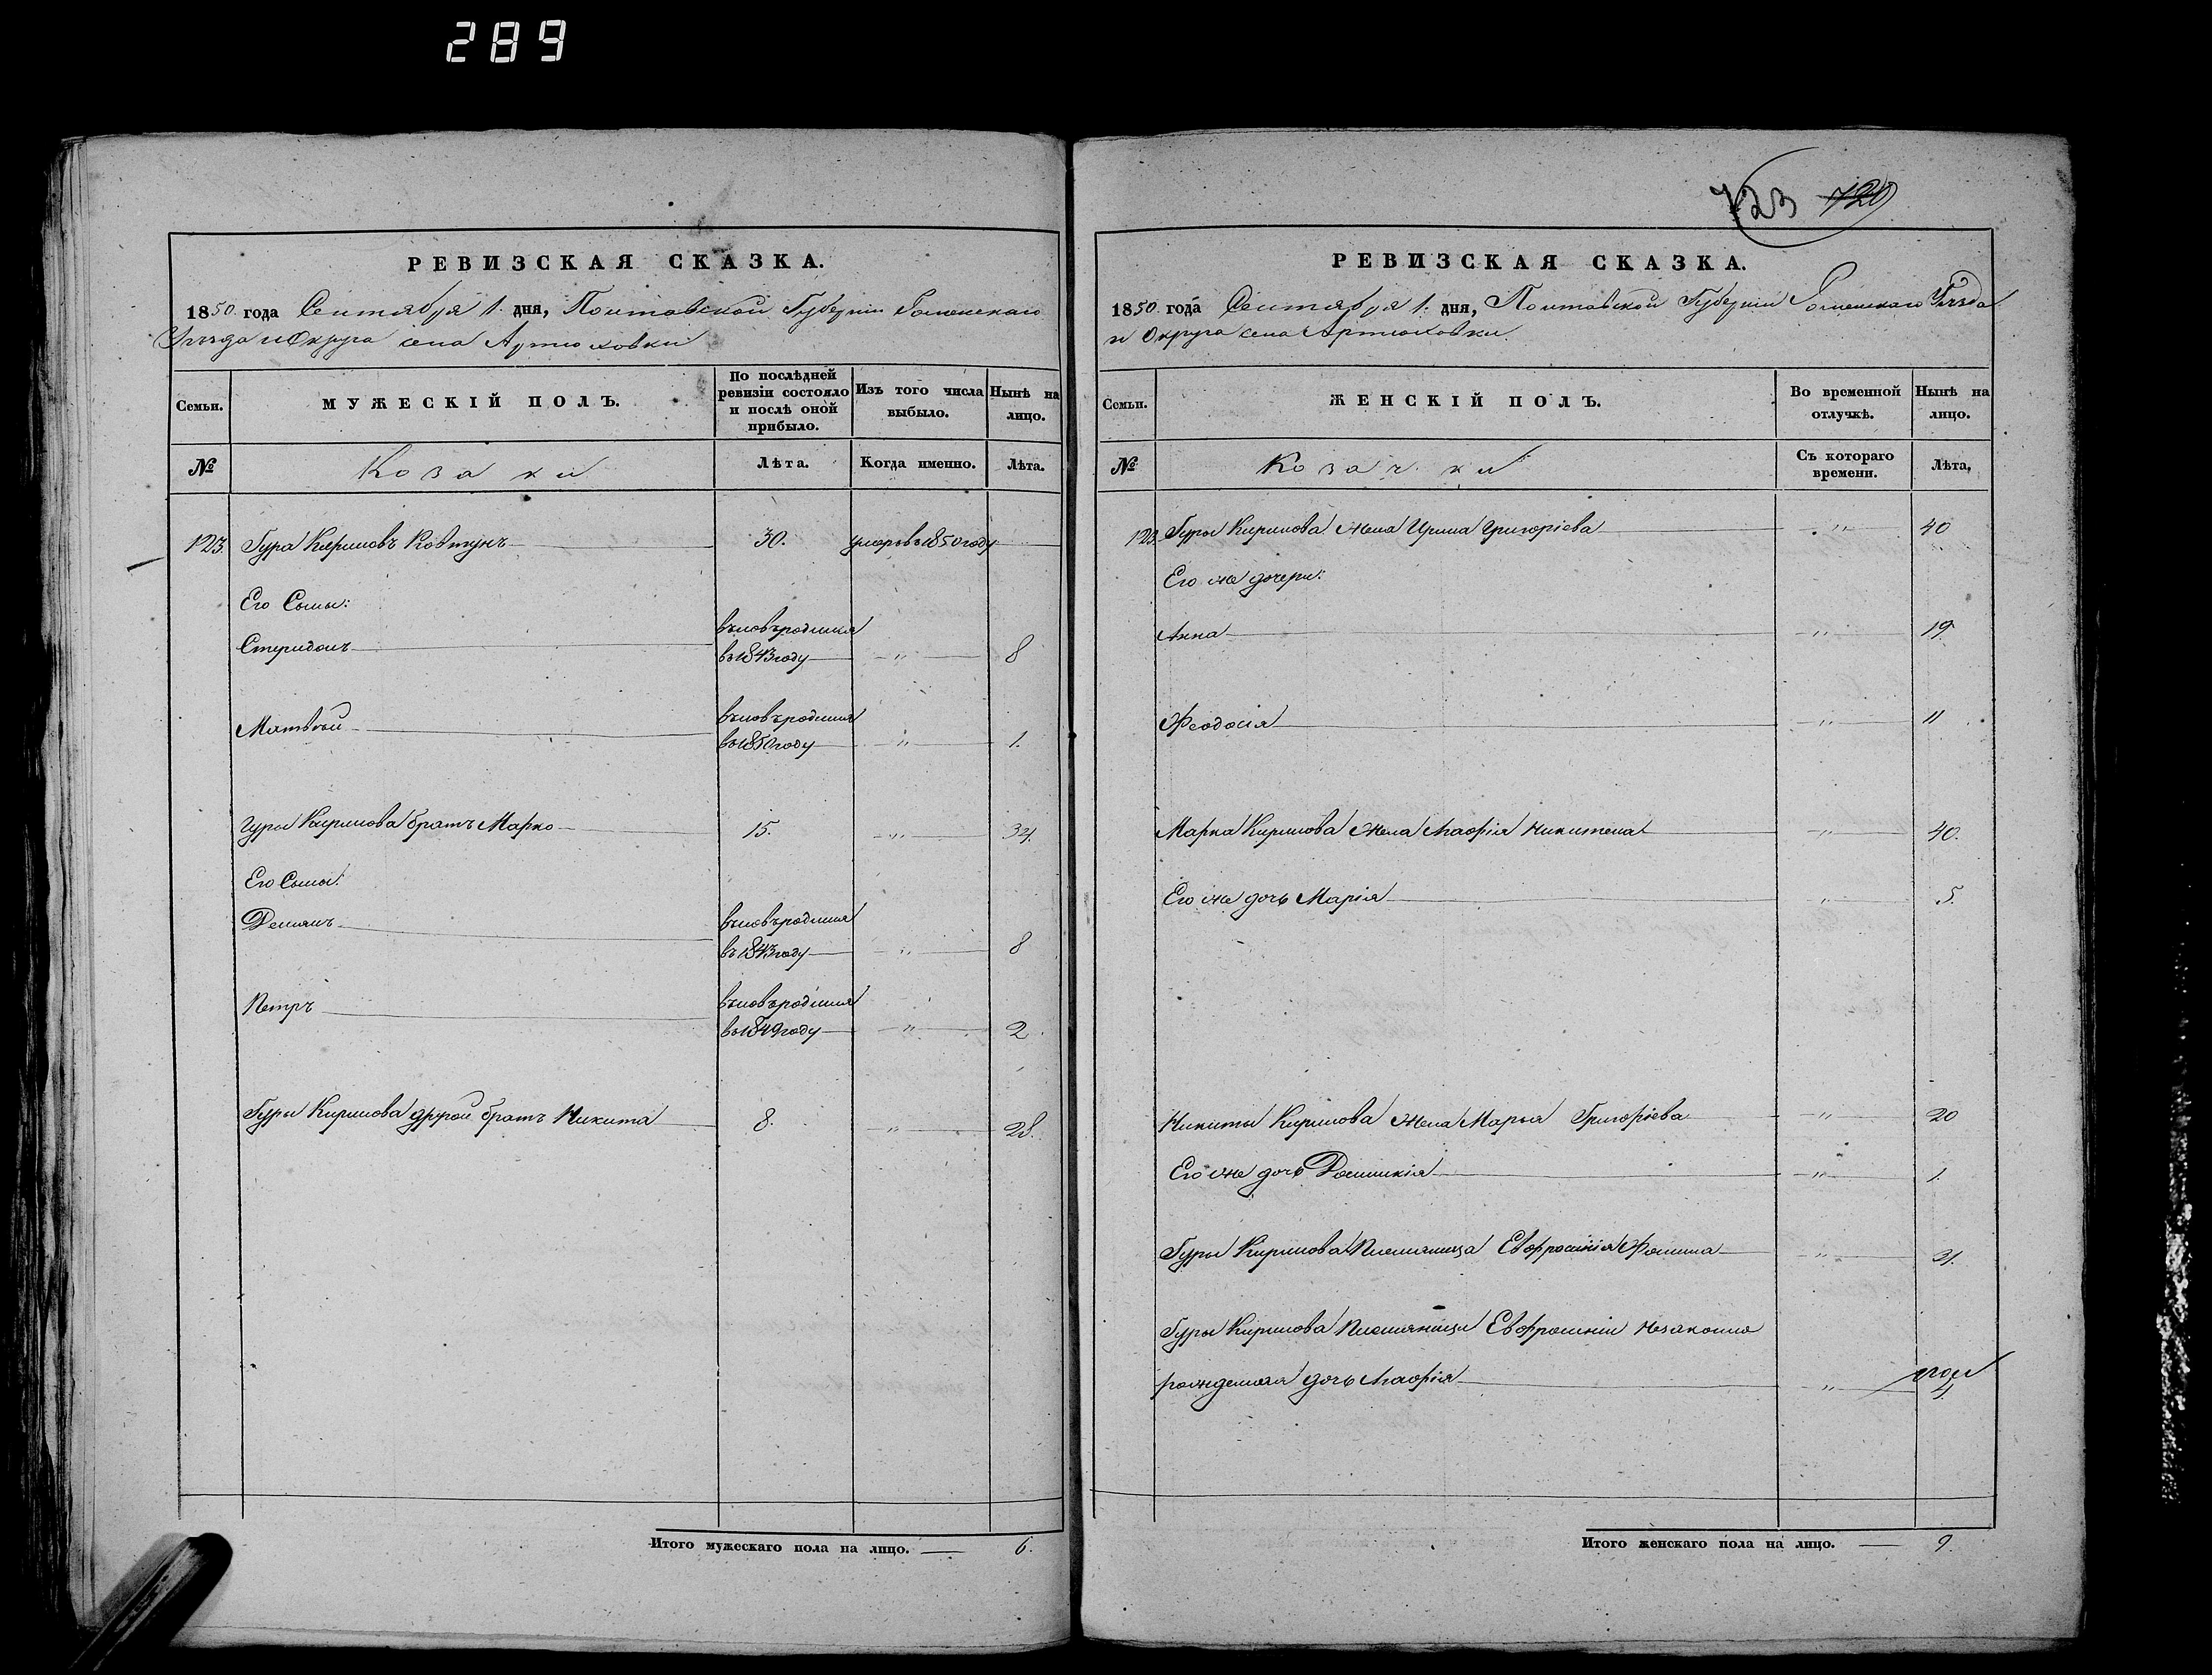 289
РЕВИЗСКАЯ СКАЗКА.
1850 года Сентября 1. дня, Полтавской Губернии Роменскаго
Уѣзда и Округа села Артюховки
Семьи.
МУЖЕСКІЙ ПОЛЪ.
По послѣдней ревизіи состояло и послѣ оной прибыло.
Изъ того числа выбыло.
Нынѣ на лицо.
№
Козаки
Лѣта.
Когда именно.
Лѣта.
123. Гура Кириловъ Ковтунъ 30. умеръ въ 1850 году
Его Сыны:
Спиридонъ вновь родился
въ 1843 году " 8
Матвѣй вновь родился
въ 1850 году " 1.
Гуры Кирилова братъ Марко 15. " 34.
Его Сыны:
Демянъ вновь родился
въ 1843 году " 8
Петръ вновь родился
въ 1849 году " 2
Гуры Кирилова другой братъ Никита 8. " 28.
Итого мужескаго пола на лицо. 6.
723 720
РЕВИЗСКАЯ СКАЗКА.
1850 года Сентября 1. дня, Полтавской Губернии Роменскаго Уѣзда
и Округа села Артюховки.
Семьи.
ЖЕНСКІЙ ПОЛЪ.
Во временной отлучкѣ.
Нынѣ на лицо.
№
Козачки
Съ котораго времени.
Лѣта.
123. Гуры Кирилова жена Ирина Григоріева " 40
Его же дочери:
Анна " 19
Феодосія " 11
Марка Кирилова жена Агафія Никитена " 40.
Его же дочь Марія " 5.
Никиты Кирилова жена Марья Григоріева " 20
Его же дочь Домникія " 1.
Гуры Кирилова племяница Евфросинія Фомина "
Гуры Кирилова племяницы Евфросиніи незаконно
рожденная дочь Агафія " 4
Итого женскаго пола на лицо. 9.